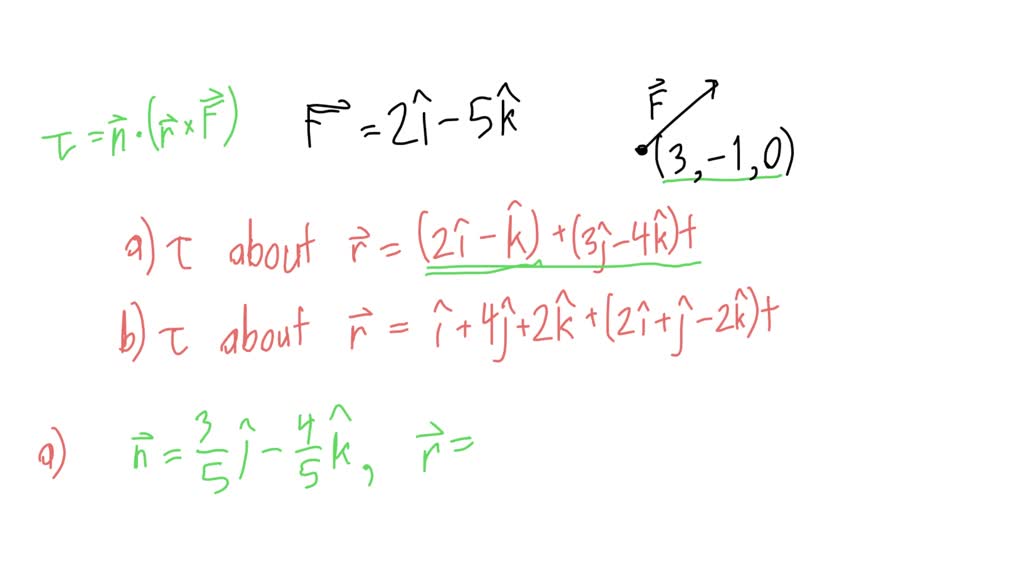 τ = n⃗ · (r⃗ × F⃗)
F⃗ = 2î − 5k̂
F⃗
(3, −1, 0)
a) τ about r⃗ = (2î − k̂) + (3ĵ − 4k̂)t
b) τ about r⃗ = î + 4ĵ + 2k̂ + (2î + ĵ − 2k̂)t
a) n⃗ = 3/5 ĵ − 4/5 k̂, r⃗ =